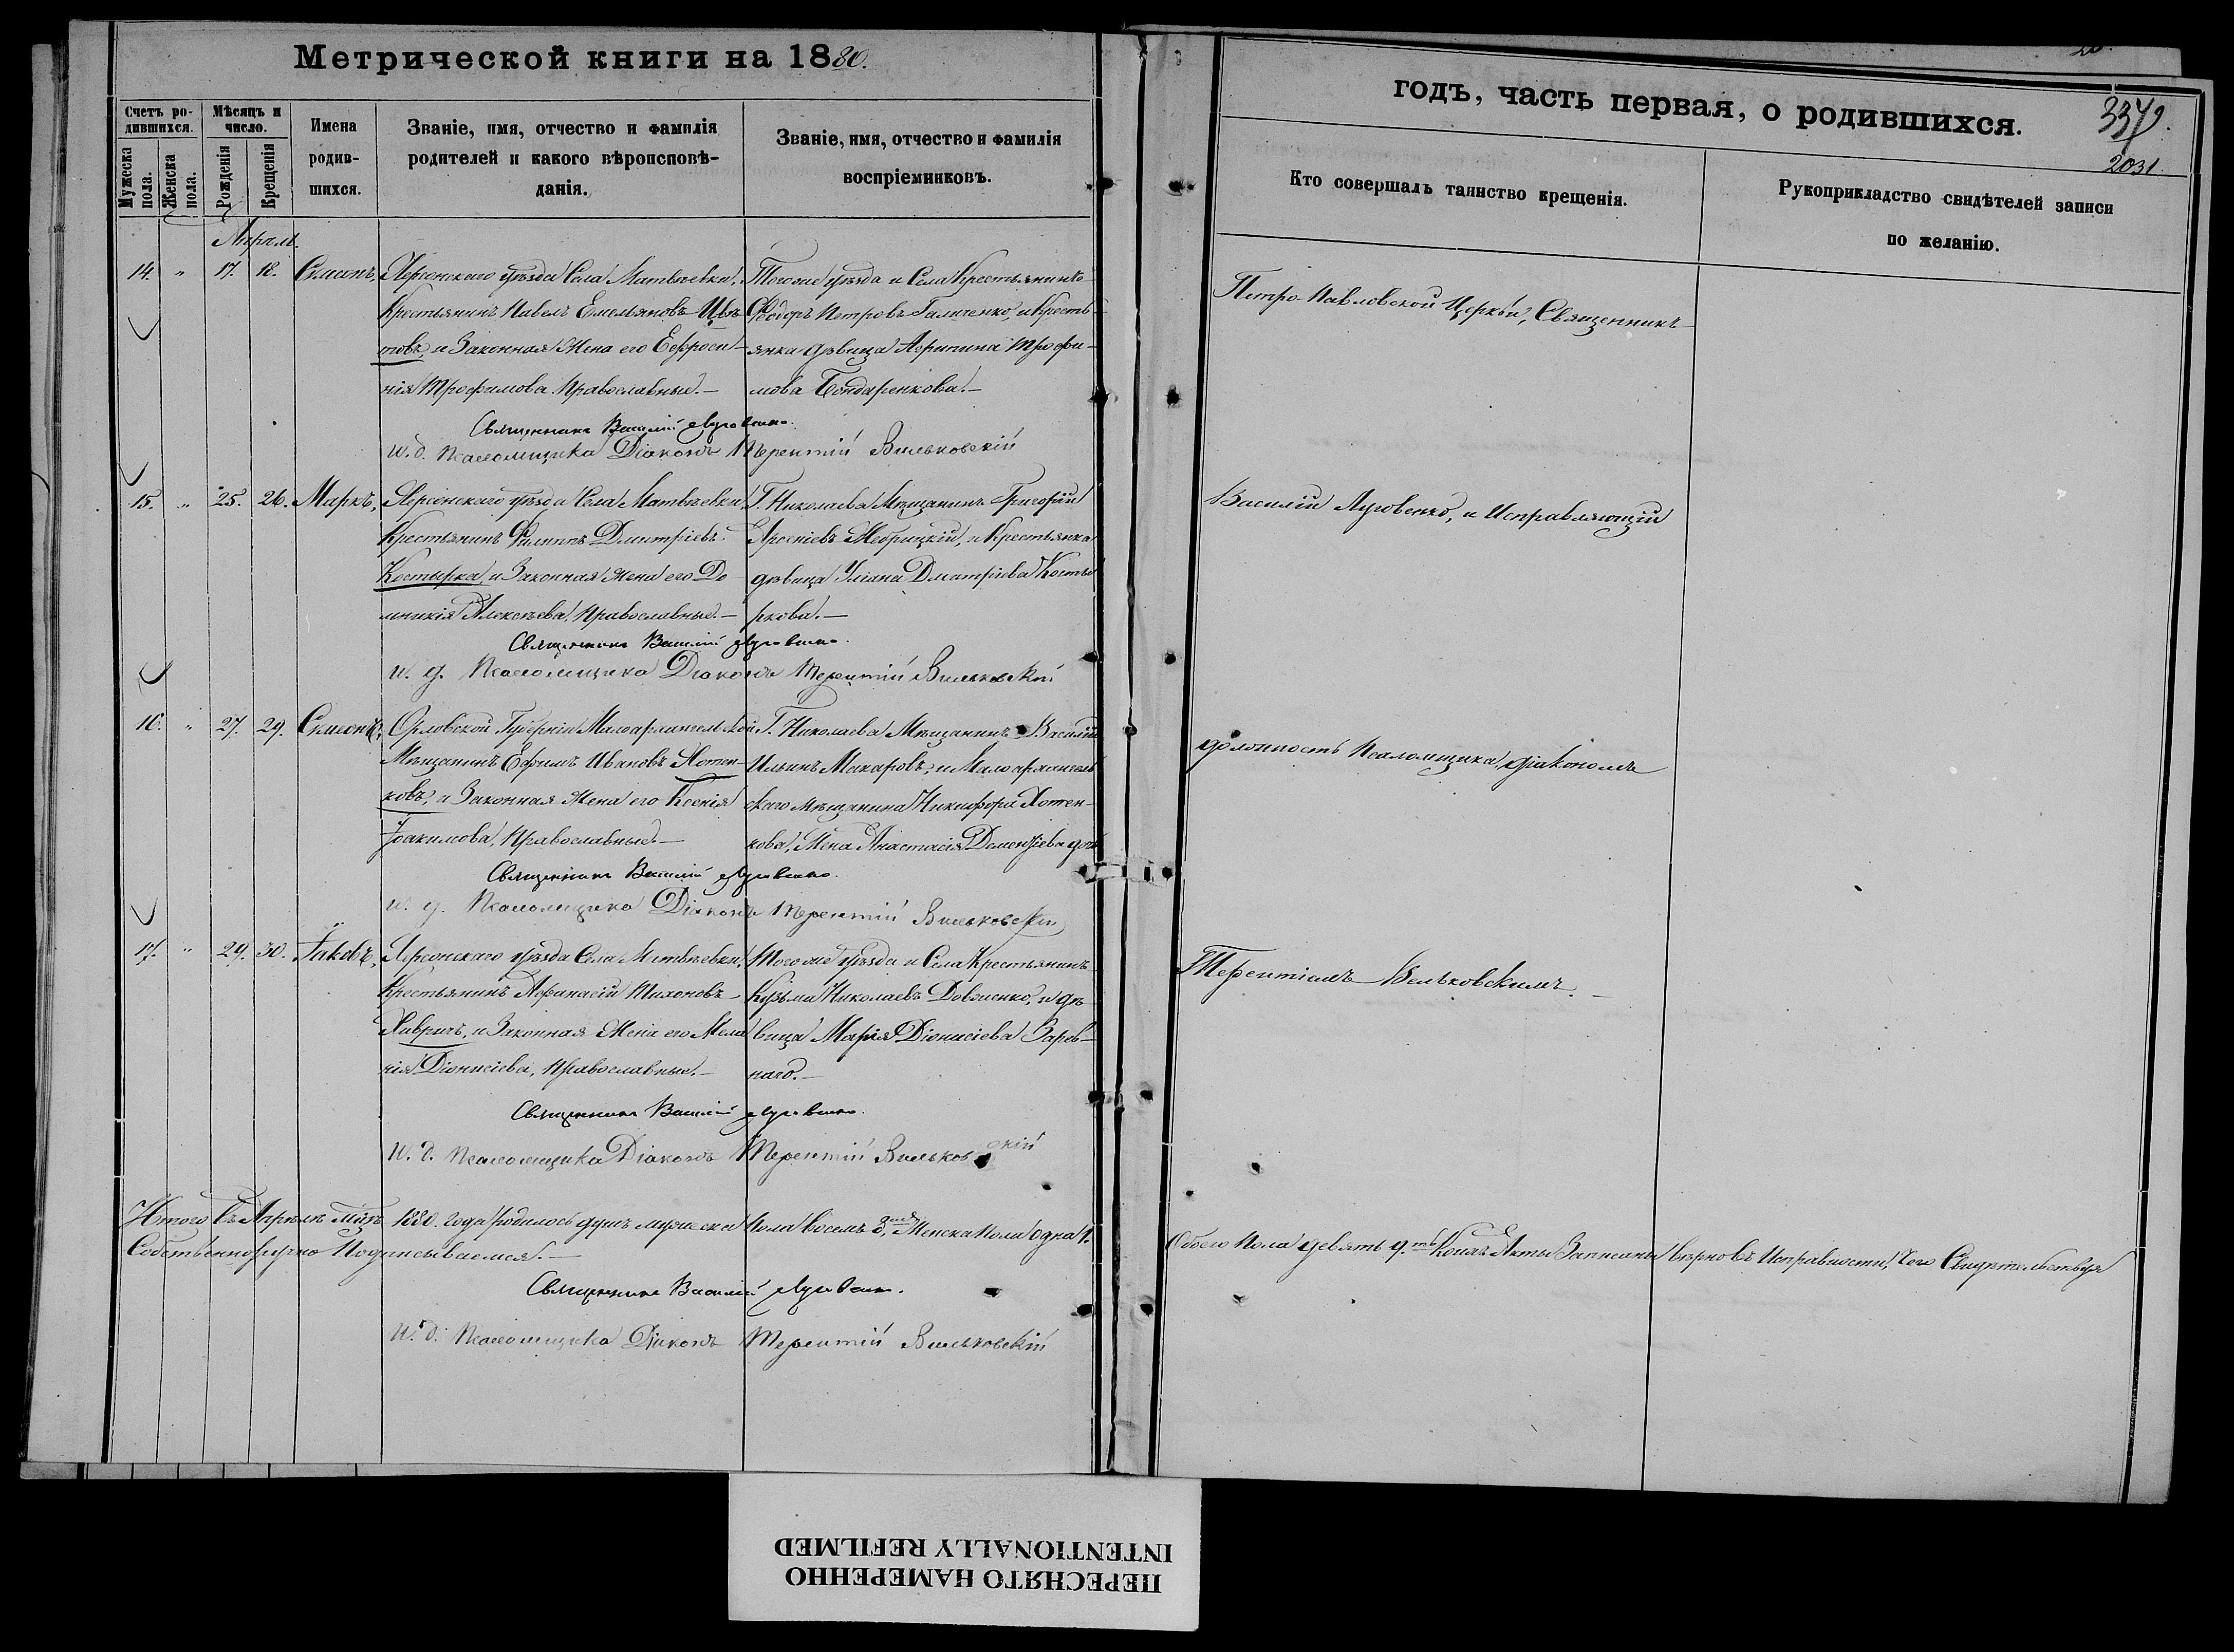 Метрической книги на 1880.
Счетъ родившихся.
Мужеска пола.
Женска пола.
Мѣсяцъ и число.
Рожденія
Крещенія
Имена родившихся.
Званіе, имя, отчество и фамилія
родителей и какого вѣроисповѣ-
данія.
Званіе, имя, отчество и фамилія
воспріемниковъ.
Апрѣль.
14. " 17. 18. Симеонъ,
Херсонскаго уѣзда Села Матвѣевки,
Крестьянинъ Павелъ Емельяновъ Цвѣ-
товъ, и Законная Жена его Ефроси-
нія Трофимова, Православные.—
Тогоже уѣзда и Села Крестьянинъ
Ѳеодоръ Петровъ Галиченко, и Кресть-
янка дѣвица Агрипина Трофи-
мова Бондаренкова.—
Священникъ Василій Луговенко.
и. д. Псаломщика Діаконъ Терентій Вильковскій
15. " 25. 26. Маркъ,
Херсонскаго уѣзда Села Матвѣевки,
Крестьянинъ Филиппъ Дмитріевъ
Костырка, и Законная Жена его До-
мникія Алексѣева, Православные.—
Г. Николаева Мѣщанинъ Григорій
Арсеніевъ Жебрицкій, и Крестьянка
дѣвица Уліана Дмитріева Косты-
ркова.—
Священникъ Василій Луговенко.
и. д. Псаломщика Діаконъ Терентій Вильковскій
16. " 27. 29. Симеонъ,
Орловской Губерніи Малоархангельской
Мѣщанинъ Ефимъ Ивановъ Хотен-
ковъ, и Законная Жена его Ксенія
Іоакимова, Православные.—
Г. Николаева Мѣщанинъ Василій
Ильинъ Макаровъ, и Малоархангель
скаго мѣщанина Никифора Хотен-
кова, Жена Анастасія Дементіева дочь
Священникъ Василій Луговенко.
и. д. Псаломщика Діаконъ Терентій Вильковскій
17. " 29. 30. Іаковъ,
Херсонскаго уѣзда Села Матвѣевки,
Крестьянинъ Афанасій Тихоновъ
Хивричъ, и Законная Жена его Мела
нія Діонисіева, Православные.—
Тогоже уѣзда и Села Крестьянинъ
Кузьма Николаевъ Довженко, и дѣ-
вица Марія Діонисіева Зарев-
наго.—
Священникъ Василій Луговенко.
и. д. Псаломщика Діаконъ Терентій Вильковскій
Итого въ Апрѣлѣ мцѣ 1880. года родилось душъ мужеска Пола восемь 8, Женска Пола одна 1.
Собственноручно Подписываемся.—
Священникъ Василій Луговенко.
и. д. Псаломщика Діаконъ Терентій Вильковскій
годъ, часть первая, о родившихся.
2031.
Кто совершалъ таинство крещенія.
Рукоприкладство свидѣтелей записи
по желанію.
Петро-Павловской Церкви, Священникъ
Василій Луговенко, и Исправляющій
должность Псаломщика Діакономъ
Терентіемъ Вельковскимъ.—
Обоего Пола девять 9. Коихъ Акты Записаны вѣрно въ Исправности, чего Свидѣтельствуя
ПЕРЕСНЯТО НАМЕРЕННО
INTENTIONALLY REFILMED